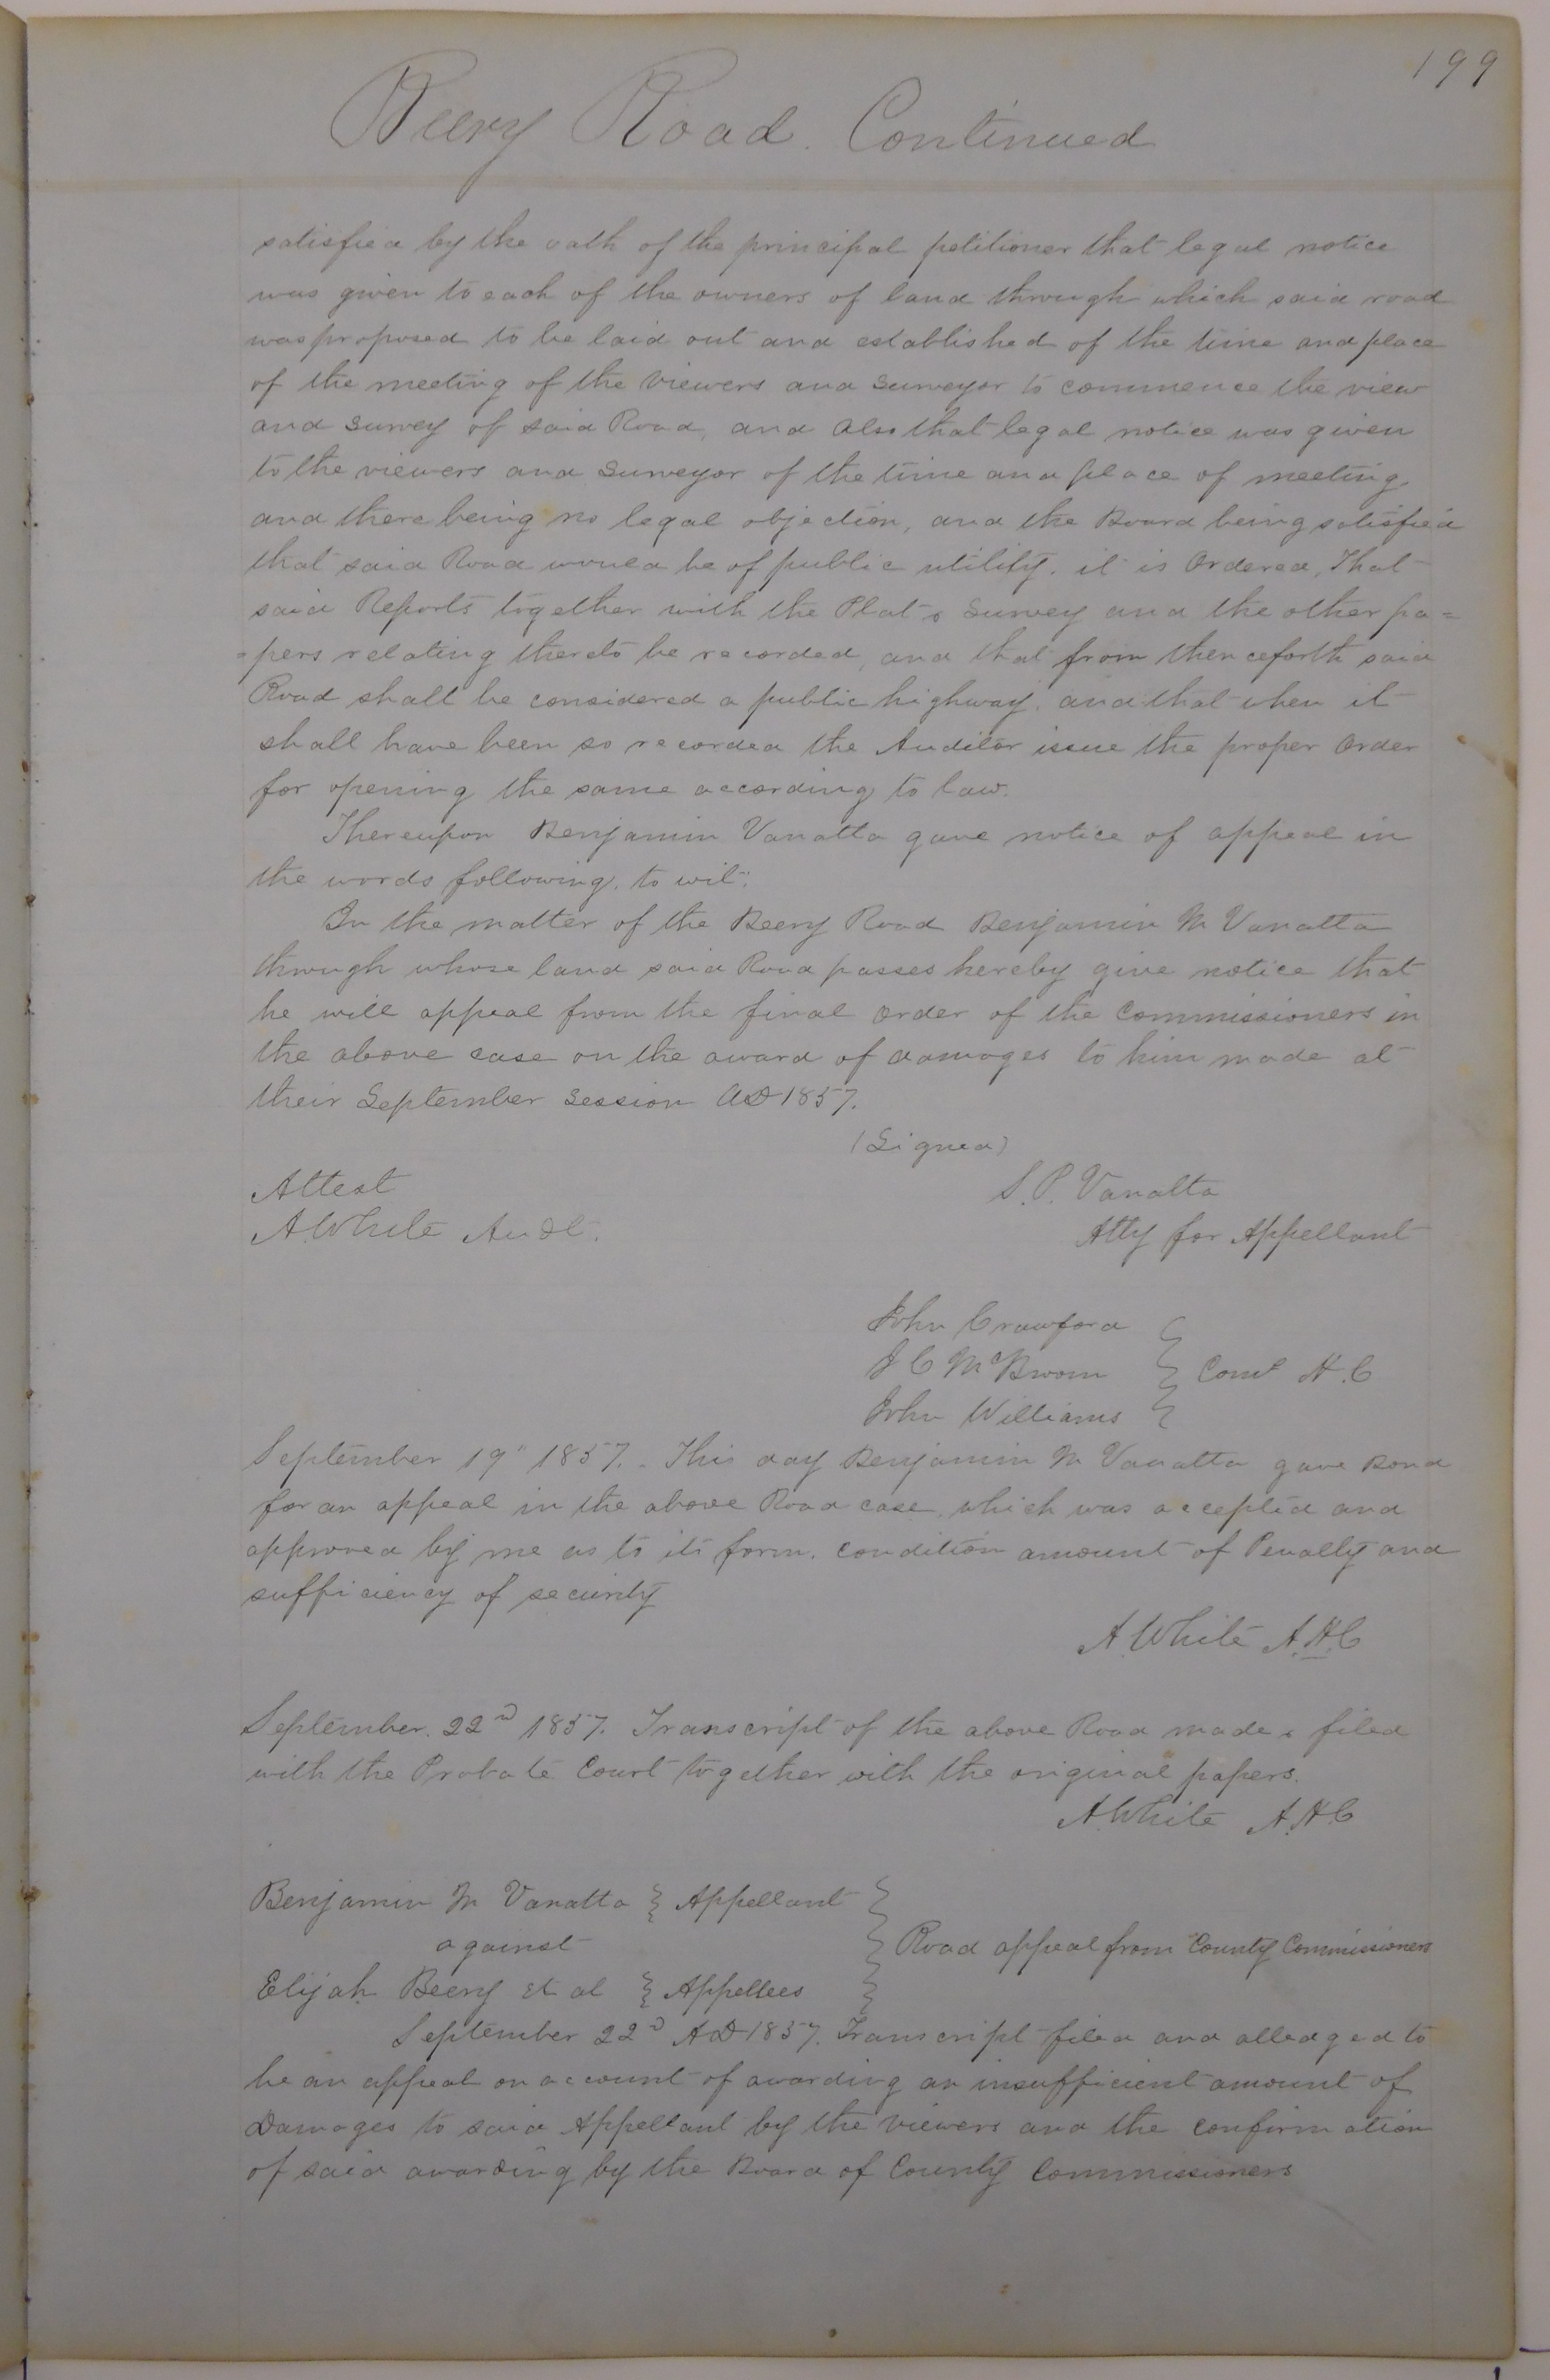 199
Beery Road. Continued
satisfied by the oath of the principal petitioner that legal notice
was given to each of the owners of land through which said road
was proposed to be laid out and established of the time and place
of the meeting of the Viewers and Surveyor to commence the view
and Survey of said Road, and Also that legal notice was given
to the viewers and Surveyor of the time and place of meeting,
and there being no legal objection, and the Board being satisfied
that said Road would be of public utility. it is Ordered, That
said Reports together with the Plat & Survey and the other pa=
=pers relating thereto be recorded, and that from thenceforth said
Road shall be considered a public highway. and that when it
shall have been so recorded the Auditor issue the proper Order
for opening the same according to law.
Thereupon Benjamin Vanatta gave notice of appeal in
the words following, to wit:
In the matter of the Beery Road Benjamin M Vanatta
through whose land said Road passes hereby give notice that
he will appeal from the final Order of the Commissioners in
the above case on the award of damages to him made at
their September Session AD 1857.
(Signed)
Attest
S. P. Vanatta
A. White Audt.
Atty for Appellant
John Crawford
J C McBroom } Comt H. C
John Williams
September 19" 1857. This day Benjamin M Vanatta gave Bond
for an appeal in the above Road case, which was accepted and
approved by me as to its form. condition amount of Penalty and
sufficiency of security
A. White A.H.C
September. 22nd 1857. Transcript of the above Road made & filed
with the Probate Court together with the original papers.
A. White A.H.C
Benjamin M Vanatta } Appellant
against } Road appeal from County Commissioners
Elijah Beery et al } Appellees
September 22d AD 1857. Transcript filed and alledged to
be an appeal on account of awarding an insufficient amount of
Damages to said Appellant by the viewers and the confirmation
of said awarding by the Board of County Commissioners